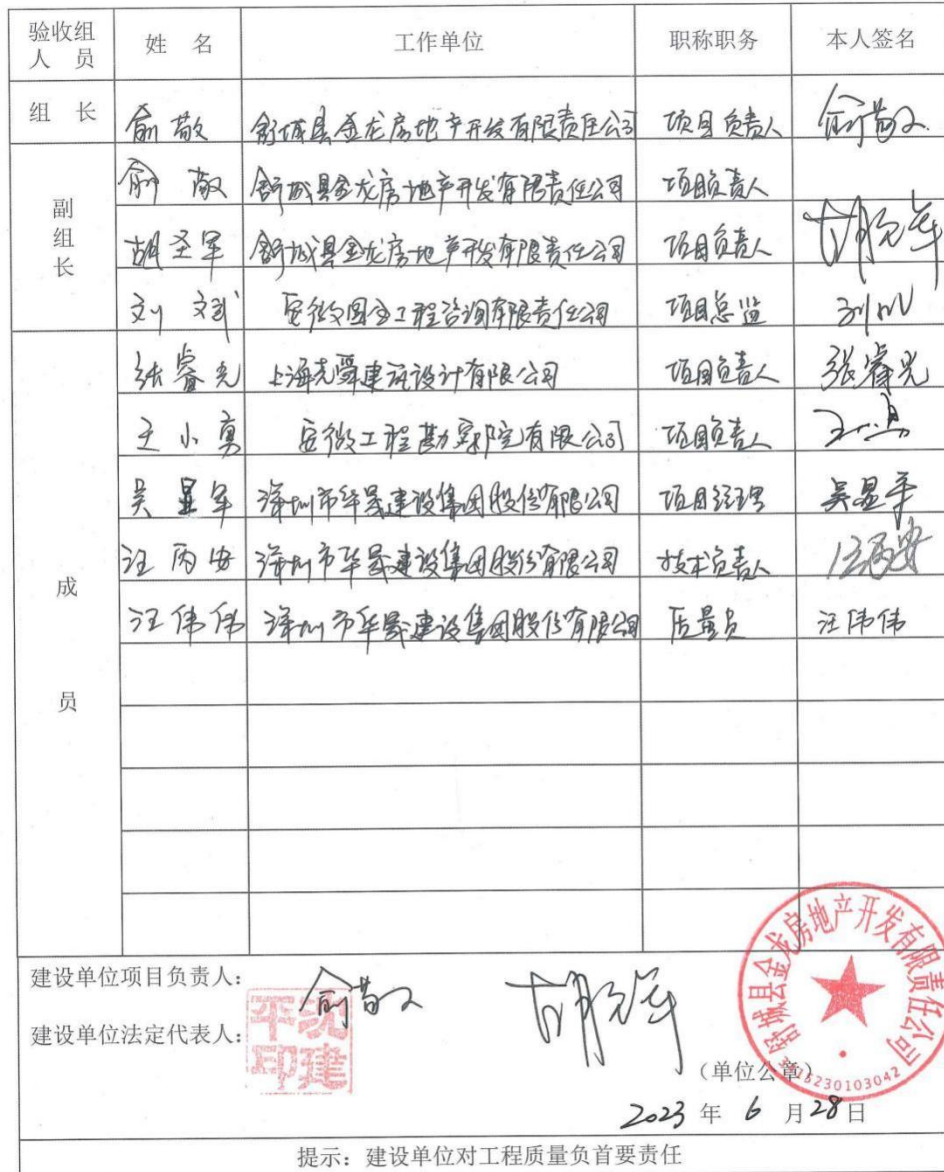 验收组人员 姓 名 工作单位 职称职务 本人签名
组 长 俞敬 舒城县金龙房地产开发有限责任公司 项目负责人 俞敬
副组长 俞敬 舒城县金龙房地产开发有限责任公司 项目负责人
胡圣军 舒城县金龙房地产开发有限责任公司 项目负责人 胡圣军
刘文斌 工程咨询有限责任公司 项目总监
成员 张睿光 上海尧舜建筑设计有限公司 项目负责人 张睿光
王小勇 安徽工程勘察院有限公司 项目负责人
吴显军 市华晟建设集团股份有限公司 项目经理 吴显军
汪丙安 市华晟建设集团股份有限公司 技术负责人 汪丙安
汪伟伟 市华晟建设集团股份有限公司 质量员 汪伟伟
建设单位项目负责人： 俞敬 胡圣军
建设单位法定代表人： 沈建平印
舒城县金龙房地产开发有限责任公司
（单位公章）
2023 年 6 月 28 日
提示：建设单位对工程质量负首要责任